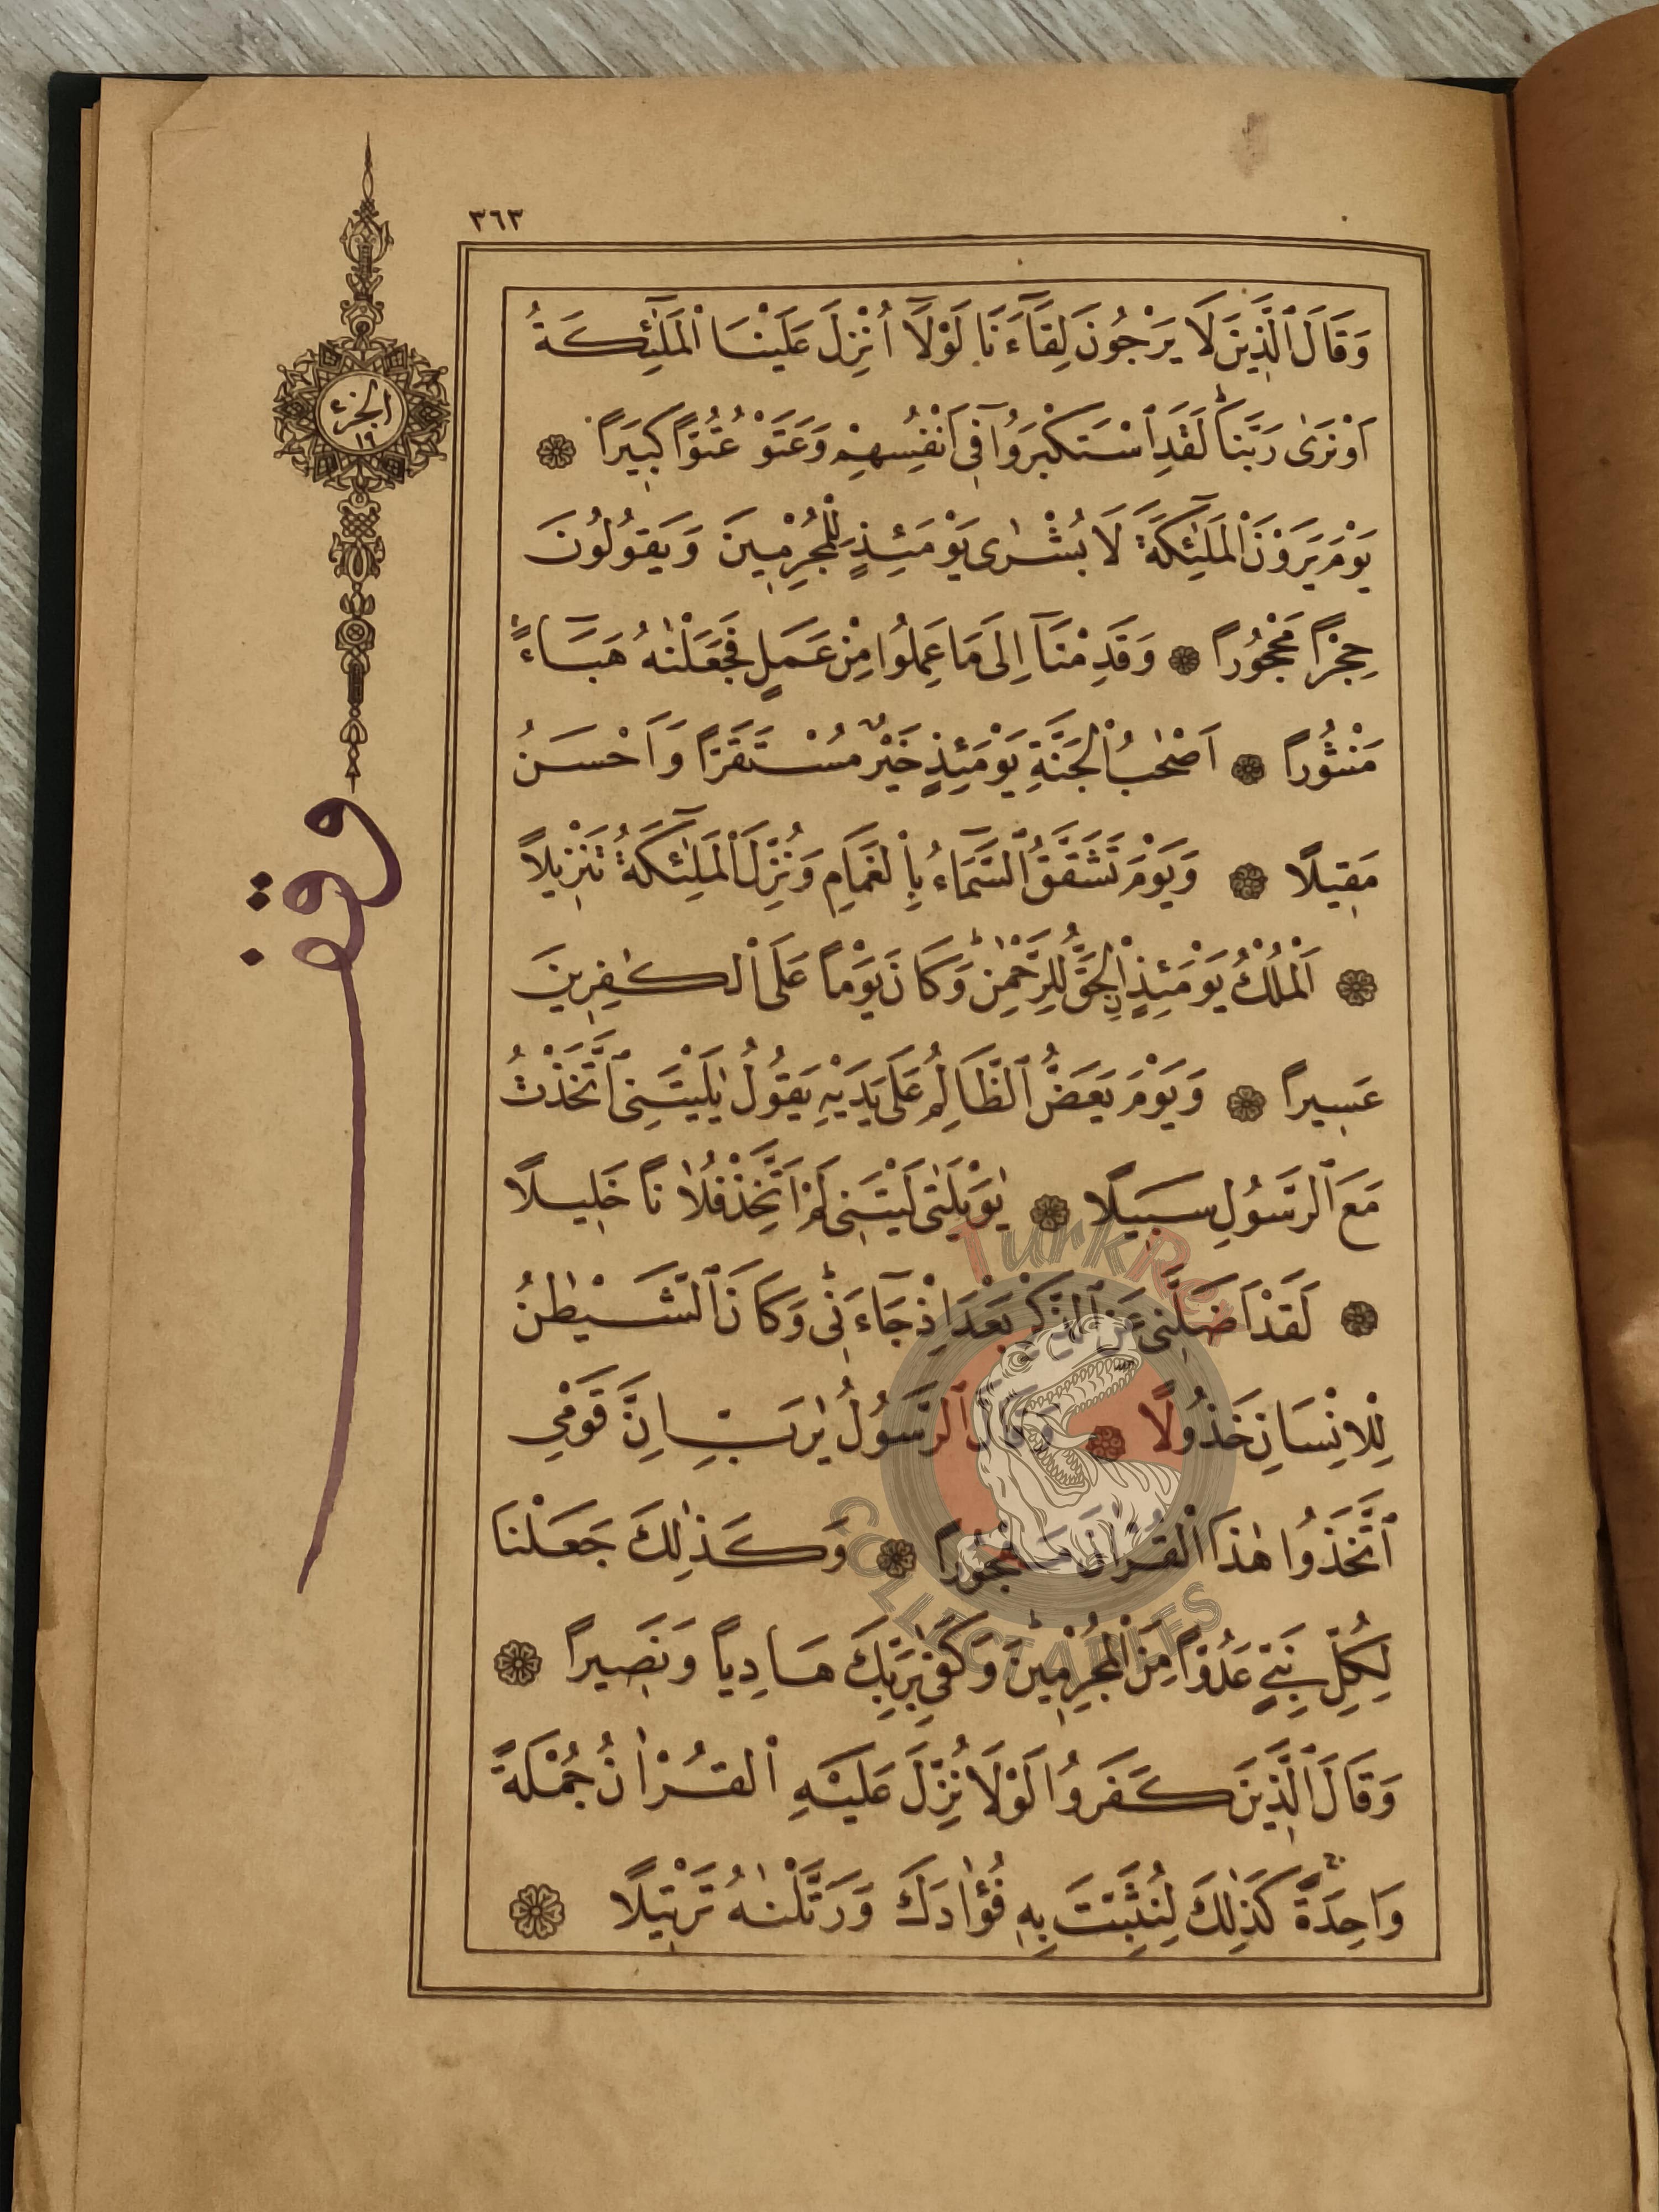 ٣٦٣
الجزء
١٩
وقف
وَقَالَ ٱلَّذِينَ لَا يَرْجُونَ لِقَآءَنَا لَوْلَآ اُنْزِلَ عَلَيْنَا ٱلْمَلٰٓئِكَةُ
اَوْ نَرٰى رَبَّنَا ۜ لَقَدِ ٱسْتَكْبَرُوا فِٓى اَنْفُسِهِمْ وَعَتَوْ عُتُوًّا كَبِيرًا ۞
يَوْمَ يَرَوْنَ ٱلْمَلٰٓئِكَةَ لَا بُشْرٰى يَوْمَئِذٍ لِلْمُجْرِمِينَ وَيَقُولُونَ
حِجْرًا مَحْجُورًا ۞ وَقَدِمْنَآ اِلٰى مَا عَمِلُوا مِنْ عَمَلٍ فَجَعَلْنٰهُ هَبَآءً
مَنْثُورًا ۞ اَصْحٰبُ ٱلْجَنَّةِ يَوْمَئِذٍ خَيْرٌ مُسْتَقَرًّا وَاَحْسَنُ
مَقِيلًا ۞ وَيَوْمَ تَشَقَّقُ ٱلسَّمَآءُ بِٱلْغَمَامِ وَنُزِّلَ ٱلْمَلٰٓئِكَةُ تَنْزِيلًا
۞ اَلْمُلْكُ يَوْمَئِذٍ ٱلْحَقُّ لِلرَّحْمٰنِ ۜ وَكَانَ يَوْمًا عَلَى ٱلْكَافِرِينَ
عَسِيرًا ۞ وَيَوْمَ يَعَضُّ ٱلظَّالِمُ عَلٰى يَدَيْهِ يَقُولُ يٰلَيْتَنِى ٱتَّخَذْتُ
مَعَ ٱلرَّسُولِ سَبِيلًا ۞ يٰوَيْلَتٰى لَيْتَنِى لَمْ اَتَّخِذْ فُلَانًا خَلِيلًا
۞ لَقَدْ اَضَلَّنِى عَنِ ٱلذِّكْرِ بَعْدَ اِذْ جَآءَنِى ۜ وَكَانَ ٱلشَّيْطٰنُ
لِلْاِنْسَانِ خَذُولًا ۞ وَقَالَ ٱلرَّسُولُ يٰرَبِّ اِنَّ قَوْمِى
ٱتَّخَذُوا هٰذَا ٱلْقُرْاٰنَ مَهْجُورًا ۞ وَكَذٰلِكَ جَعَلْنَا
لِكُلِّ نَبِىٍّ عَدُوًّا مِنَ ٱلْمُجْرِمِينَ ۜ وَكَفٰى بِرَبِّكَ هَادِيًا وَنَصِيرًا ۞
وَقَالَ ٱلَّذِينَ كَفَرُوا لَوْلَا نُزِّلَ عَلَيْهِ ٱلْقُرْاٰنُ جُمْلَةً
وَاحِدَةً ۛ كَذٰلِكَ لِنُثَبِّتَ بِهِ فُؤٰادَكَ وَرَتَّلْنٰهُ تَرْتِيلًا ۞
TurkRex
COLLECTABLES